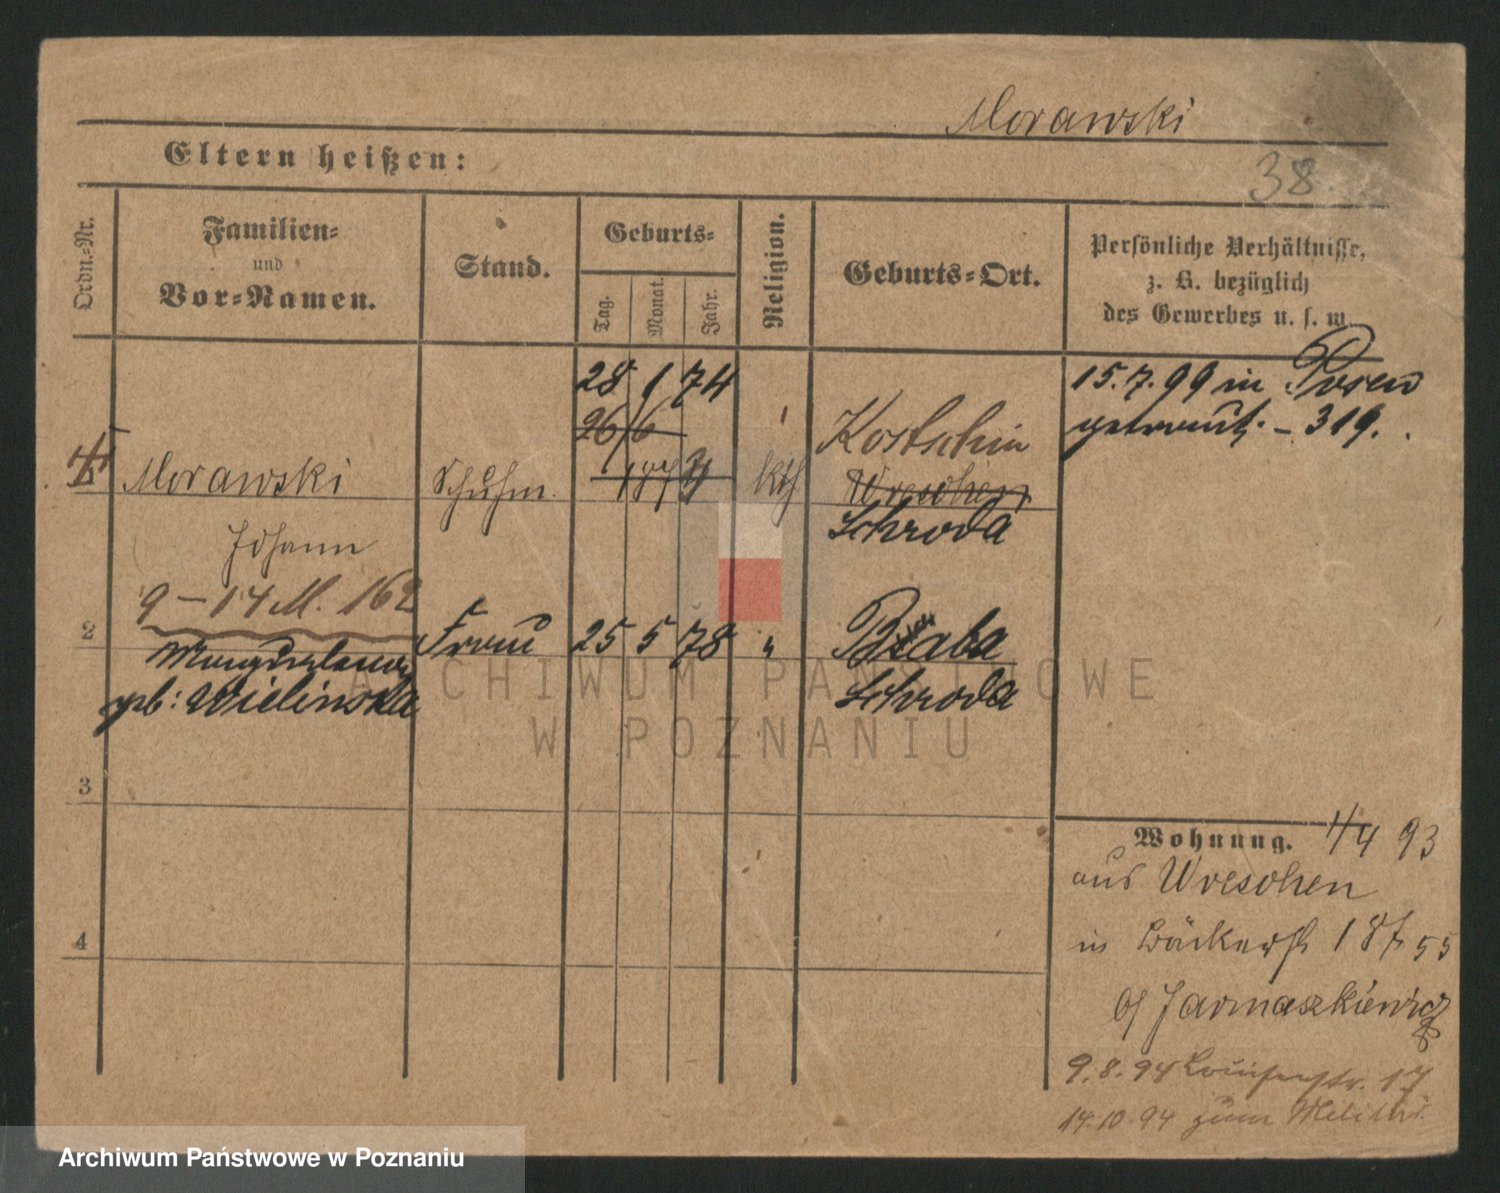 Morawski
Eltern heißen:
38.
Ordn.-Nr.
Familien-
und
Vor-Namen.
Stand.
Geburts-
Tag.
Monat.
Jahr.
Religion.
Geburts-Ort.
Persönliche Verhältnisse,
z. B. bezüglich
des Gewerbes u. s. w.
28 1 74
15.7.99 in Posen
getraut. - 319.
26/6
1874
Kostschin
Morawski
Schuhm.
kth
Wreschen
Schroda
Johann
9-14 M. 162
2
Frau
25 5 78
"
Braba
geb: Wielinska
Schroda
ARCHIWUM PAŃSTWOWE
W POZNANIU
3
Wohnung. 1/4 93
aus Wreschen
in Bäckerst 18
b/ Jarnaszkiewicz
4
9.8.94 Louisenstr. 17
14.10.94 zum Militär.
Archiwum Państwowe w Poznaniu